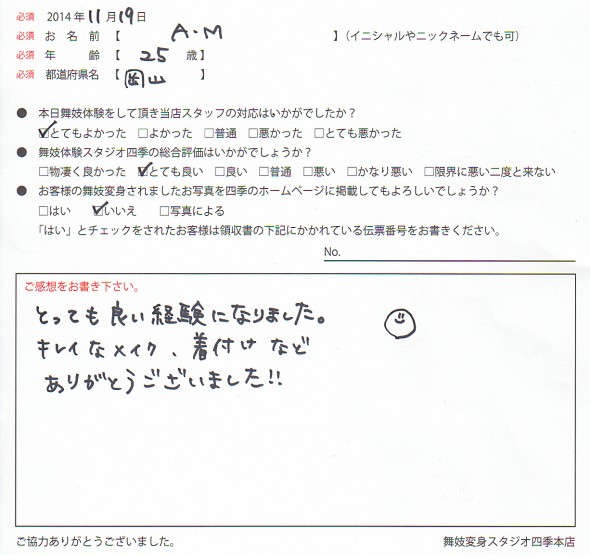 必須 2014年11月19日
必須 お名前【 A・M 】（イニシャルやニックネームでも可）
必須 年齢【 25 歳】
必須 都道府県名【 岡山 】
● 本日舞妓体験をして頂き当店スタッフの対応はいかがでしたか？
☑とてもよかった □よかった □普通 □悪かった □とても悪かった
● 舞妓体験スタジオ四季の総合評価はいかがでしょうか？
□物凄く良かった ☑とても良い □良い □普通 □悪い □かなり悪い □限界に悪い二度と来ない
● お客様の舞妓変身されましたお写真を四季のホームページに掲載してもよろしいでしょうか？
□はい ☑いいえ □写真による
「はい」とチェックをされたお客様は領収書の下記にかかれている伝票番号をお書きください。
No.
ご感想をお書き下さい。
とっても良い経験になりました。
キレイなメイク、着付けなど
ありがとうございました!!
ご協力ありがとうございました。
舞妓変身スタジオ四季本店